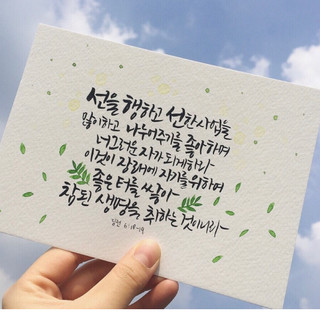 선을 행하고 선한 사업을
많이하고 나누어주기를 좋아하며
너그러운 자가 되게하라
이것이 장래에 자기를 위하여
좋은 터를 쌓아
참된 생명을 취하는 것이니라
딤전 6:18-19